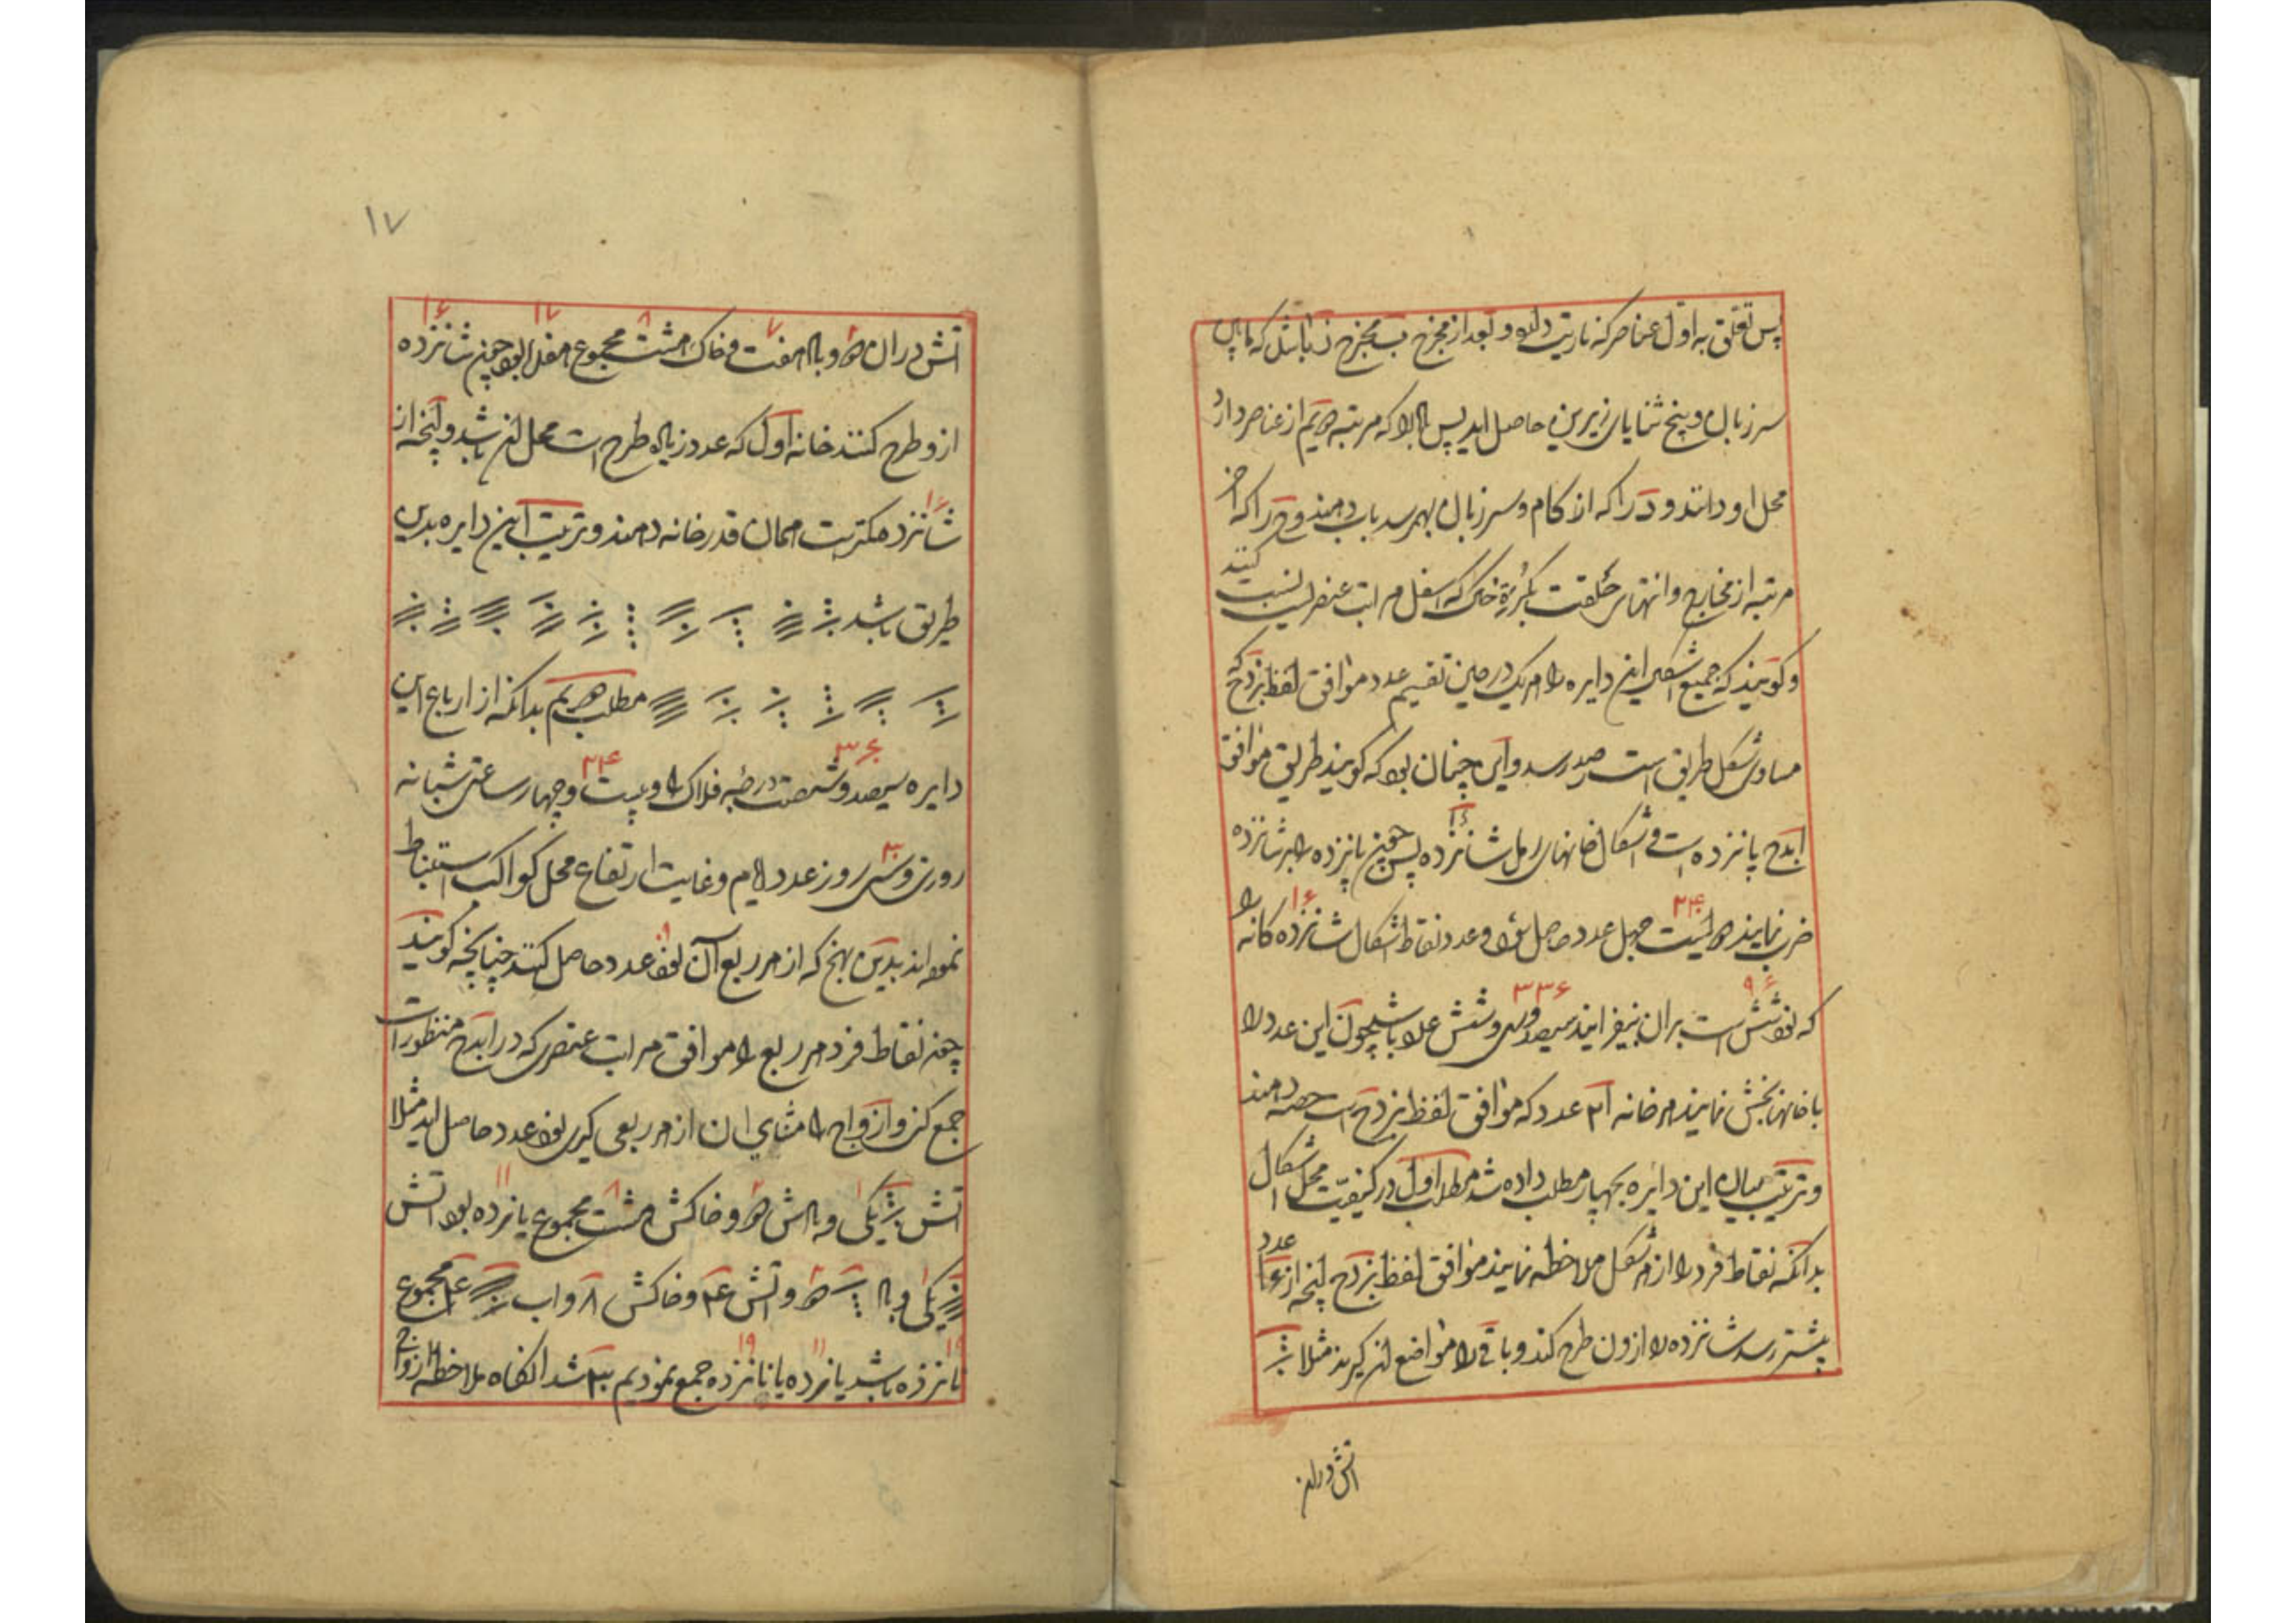 پس تعلق به اول عناصر که ناریت دارد و بعد از مخرج ب مخرج ز باشد که مابین
سر زبان و پنج ثنایای زیرین حاصل اید پس ب را که مرتبه دویم از عناصر دارد
محل او دانند و د را که از کام و سر زبان بهم رسد باب دهند و ح را که اخر
مرتبه از مخارج و انتهای حلقست بکره خاک که اسفل مراتب عنصریست نسبت کنند
و کویند که جمیع اشکال این دایره را هر یک در حین تقسیم عدد موافق لفظ بزدح که
مساوی شکل طریق است رصد رسد و این چنان بود که کویند طریق موافق
ابدح پانزده است و اشکال خانهای رمل شانزده ۱۶ پس چون پانزده را بر شانزده
ضرب نمایند دویست ۲۴۰ چهل عدد حاصل شود و عدد نقاط اشکال شانزده ۱۶ کانه را
که نود و شش ۹۶ است بران بیفزایند سیصد و سی و شش ۳۳۶ عدد باشد چون این عدد را
با خانها بخش نمایند هر خانه ۲۱ عدد که موافق لفظ بزدح است حصه دهند
و ترتیب بیان این دایره بچهار مطلب داده شد مطلب اول در کیفیت محل اشکال
بدانکه نقاط فرد را از هر شکل ملاحظه نمایند موافق لفظ بزدح انچه از ۱۶ عدد
بیشتر رسد شانزده را ازون طرح کند و باقی را مواضع ان کیرند مثلا
اتش دران
۱۷
اتش دران دو و باد هفت ۷ و خاک هشت ۸ مجموع هفده ۱۷ بود چون شانزده ۱۶
ازو طرح کنند خانه اول که عدد زیاده طرح است محل ان باشد و انچه از
شانزده ۱۶ کمترست همان قدر خانه دهند و ترتیب این دایره بدین
طریق باشد
مطلب دویم بدانکه از ارباع این
دایره سیصد و شصت ۳۶۰ درجه فلاک را و بیست و چهار ۲۴ ساعتی شبانه
روزی و سی ۳۰ روز عدد ایام و غایت ارتفاع محل کواکب استنباط
نموده اند بدین نهج که از هر ربع آن نود ۹۰ عدد حاصل کنند چنانچه کویند
چون نقاط فرد هر ربع را موافق مراتب عنصری که در ابدح منظور است
جمع کنی و ازواج را مثنای ان از هر ربعی کیری نود عدد حاصل اید مثلا
اتش یکی و بادش دو و خاکش هشت ۸ مجموع یازده ۱۱ بود اتش
یکی و باد دو و اتش و خاکش ۸ و اب مجموع
باشد یازده ۱۱ با نانزده ۱۹ جمع نمودیم ۳۰ شد انکاه ملاحظه ازواج